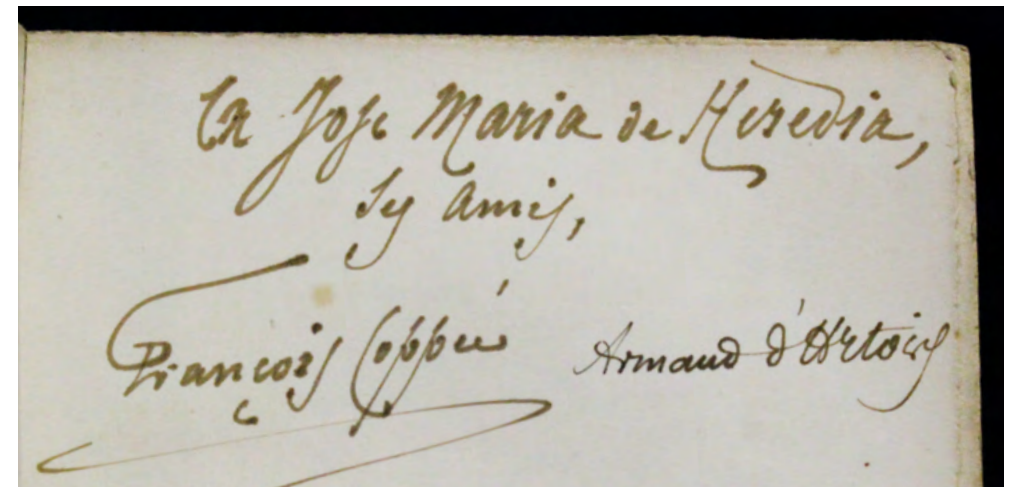 à José Maria de Heredia,
Ses amis,
François Coppée Armand d'Artois